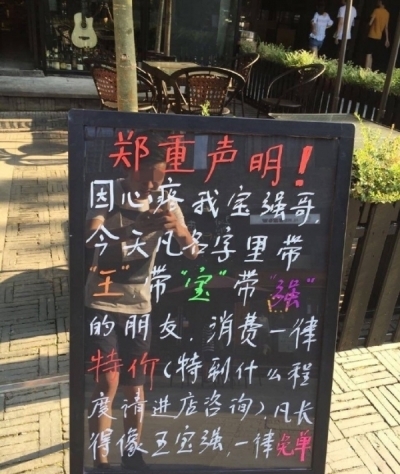 郑重声明!
因心疼我宝强哥
今天凡名字里带
"王"带"宝"带"强"
的朋友,消费一律
特价(特到什么程
度请进店咨询)凡长
得像王宝强,一律免单